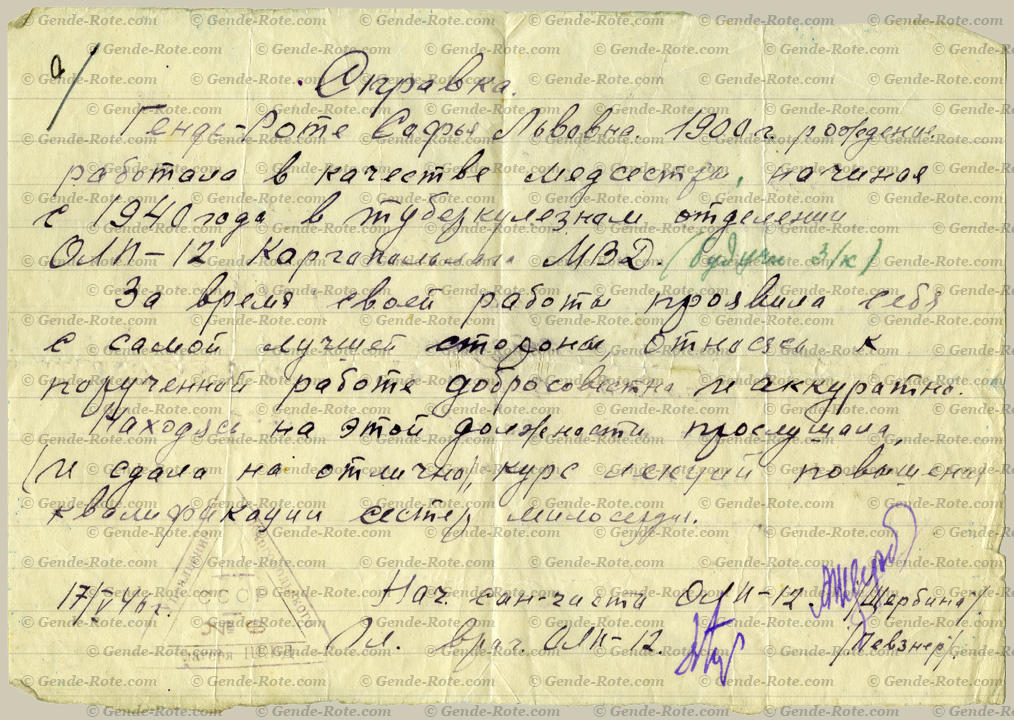 а/
Справка.
Генде-Роте Софья Львовна. 1900 г. рождения
работала в качестве медсестры, начиная
с 1940 года в туберкулезном отделении
ОЛП-12 Каргопольлага МВД. (будучи з/к)
За время своей работы проявила себя
с самой лучшей стороны, относясь к
порученной работе добросовестно и аккуратно.
Находясь на этой должности прослушала
(и сдала на отлично) курс лекций повышения
квалификации сестер милосердия.
17/V 46 г. Нач. сан-части ОЛП-12 /Щербина/.
Гл. врач. ОЛП-12. /Певзнер/.
СССР
© Gende-Rote.com